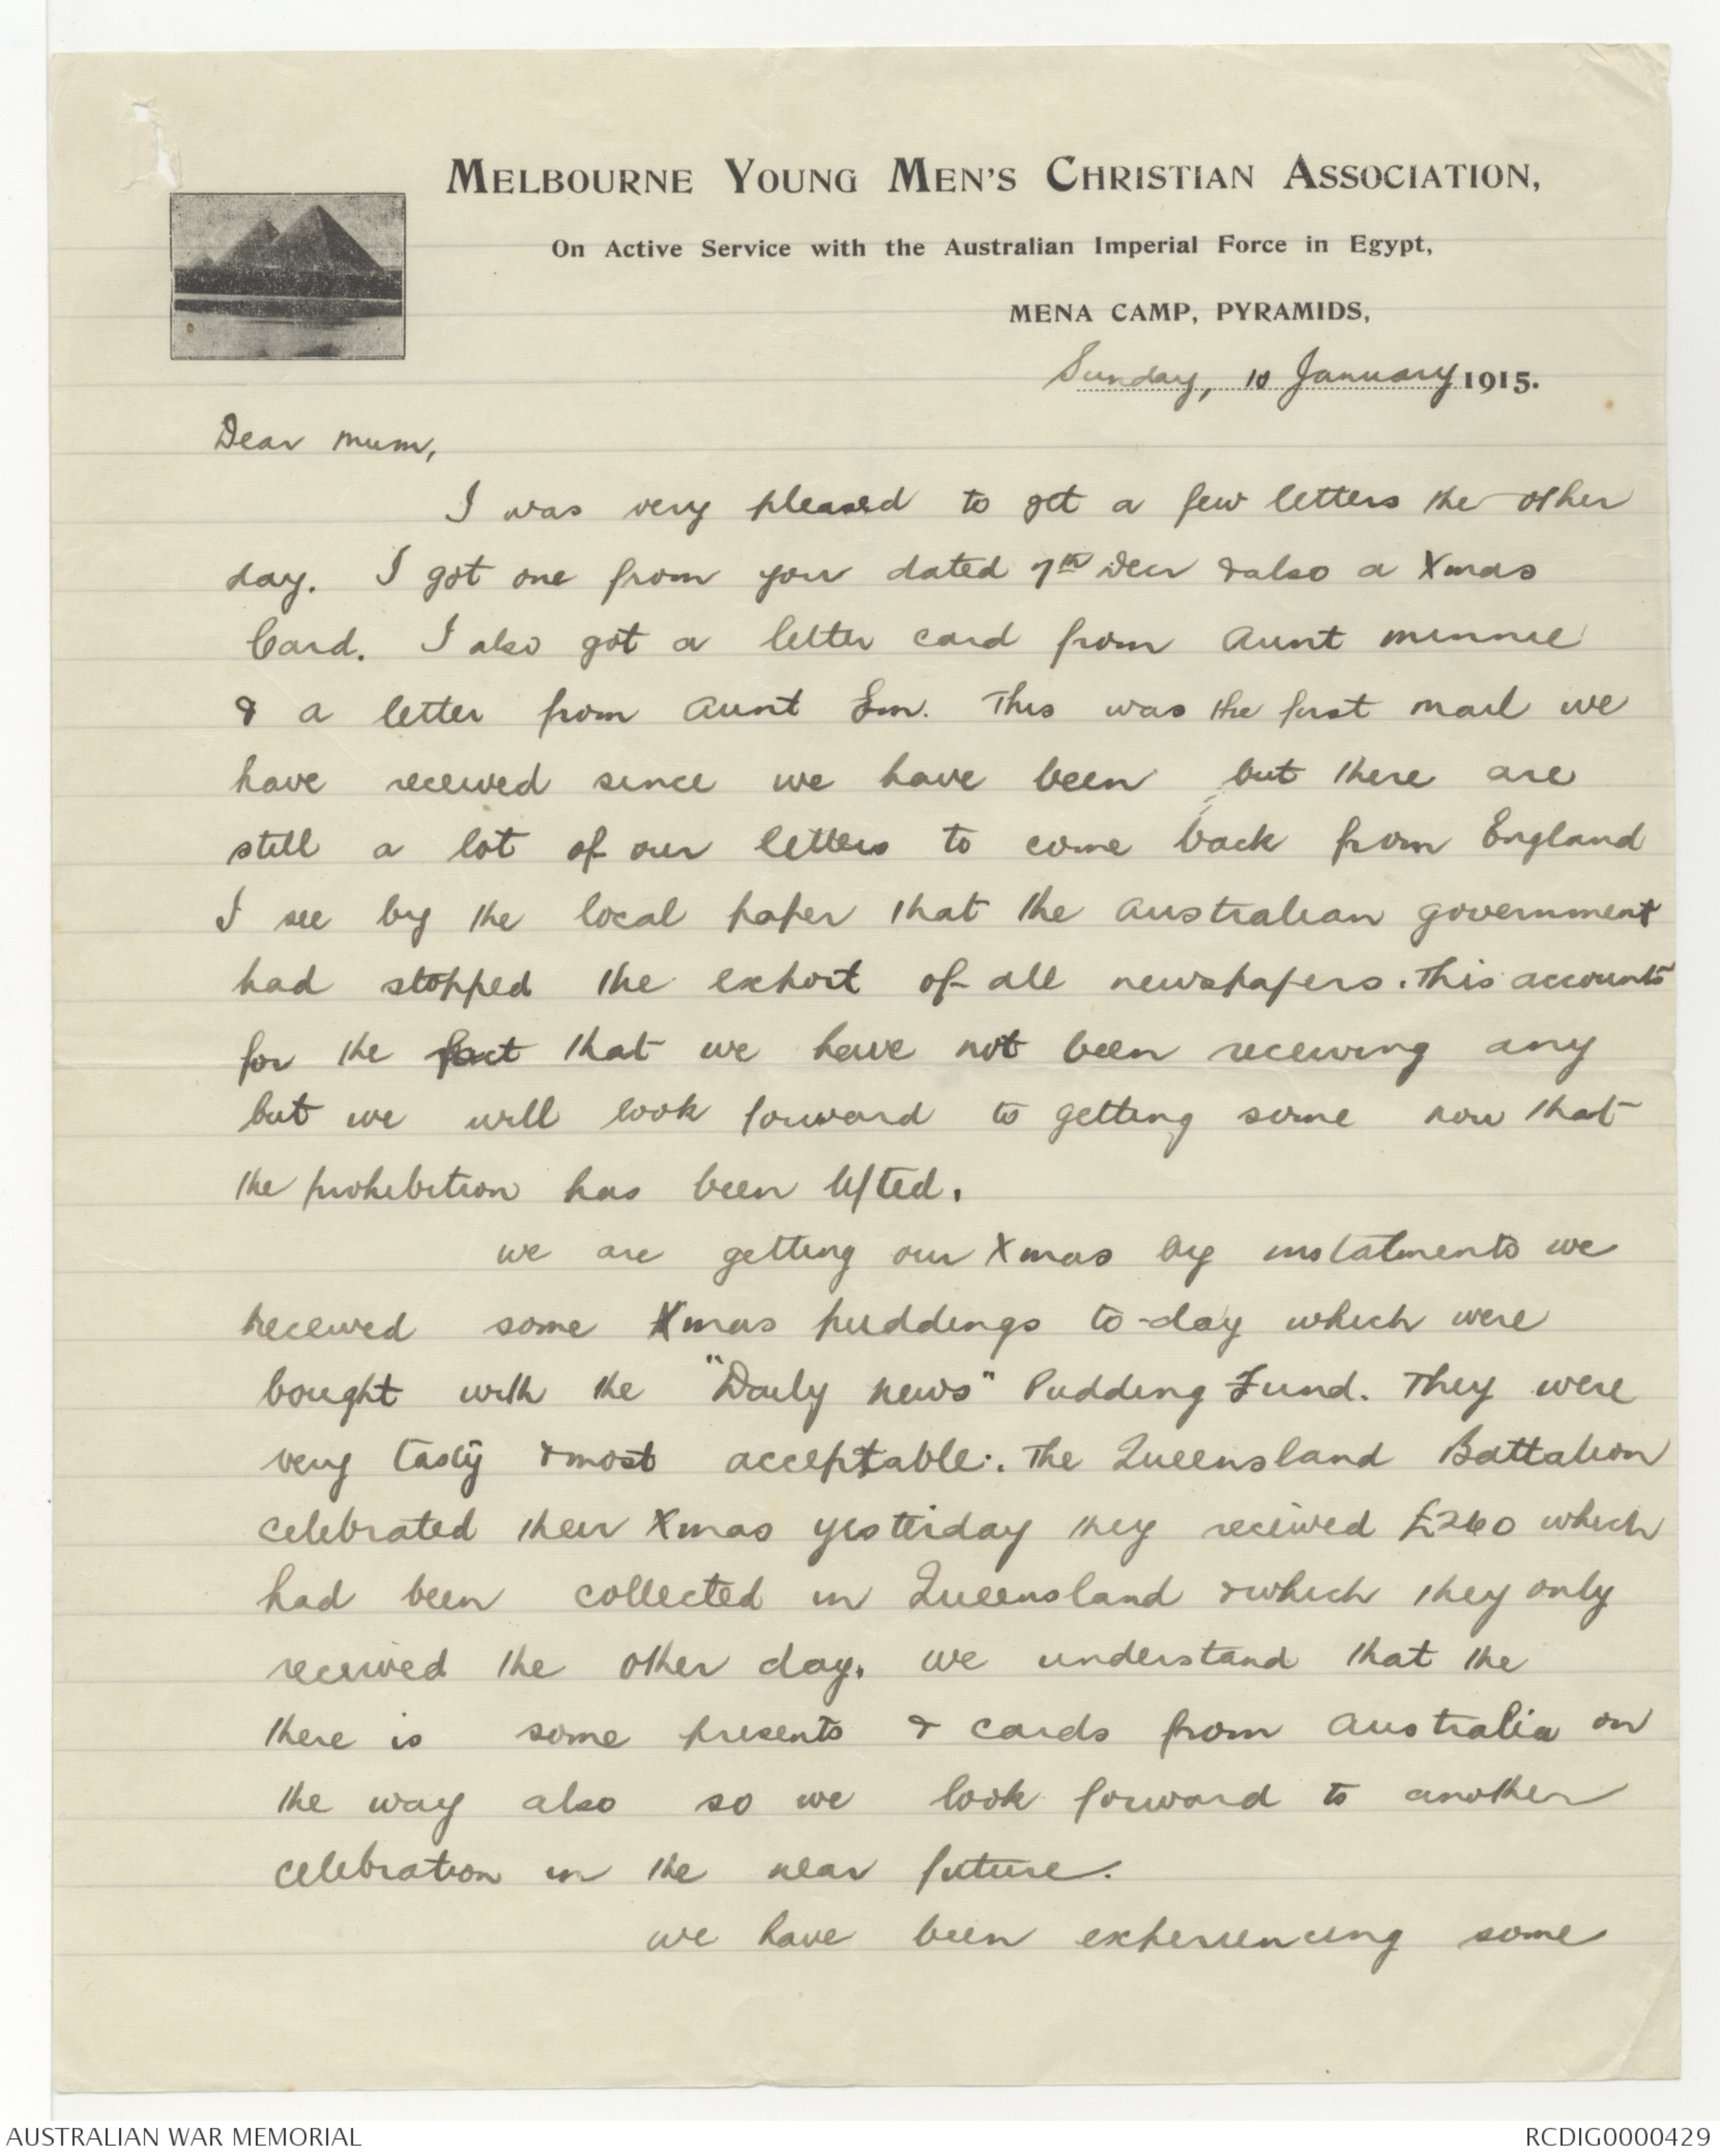 MELBOURNE YOUNG MEN'S CHRISTIAN ASSOCIATION,
On Active Service with the Australian Imperial Force in Egypt,
MENA CAMP, PYRAMIDS,
Sunday, 10 January 1915.
Dear Mum,
I was very pleased to get a few letters the other
day. I got one from you dated 7th Decr & also a Xmas
Card. I also got a letter card from Aunt Minnie
& a letter from Aunt Em. This was the first mail we
have received since we have been but there are
still a lot of our letters to come back from England
I see by the local paper that the Australian government
had stopped the export of all newspapers. This accounts
for the fact that we have not been receiving any
but we will look forward to getting some now that
the prohibition has been lifted.
We are getting our Xmas by instalments we
received some Xmas puddings to-day which were
bought with the "Daily News" Pudding Fund. They were
very tasty & most acceptable. The Queensland Battalion
celebrated their Xmas yesterday they received £260 which
had been collected in Queensland & which they only
received the other day. We understand that the
there is some presents & cards from Australia on
the way also so we look forward to another
celebration in the near future.
We have been experiencing some
AUSTRALIAN WAR MEMORIAL
RCDIG0000429